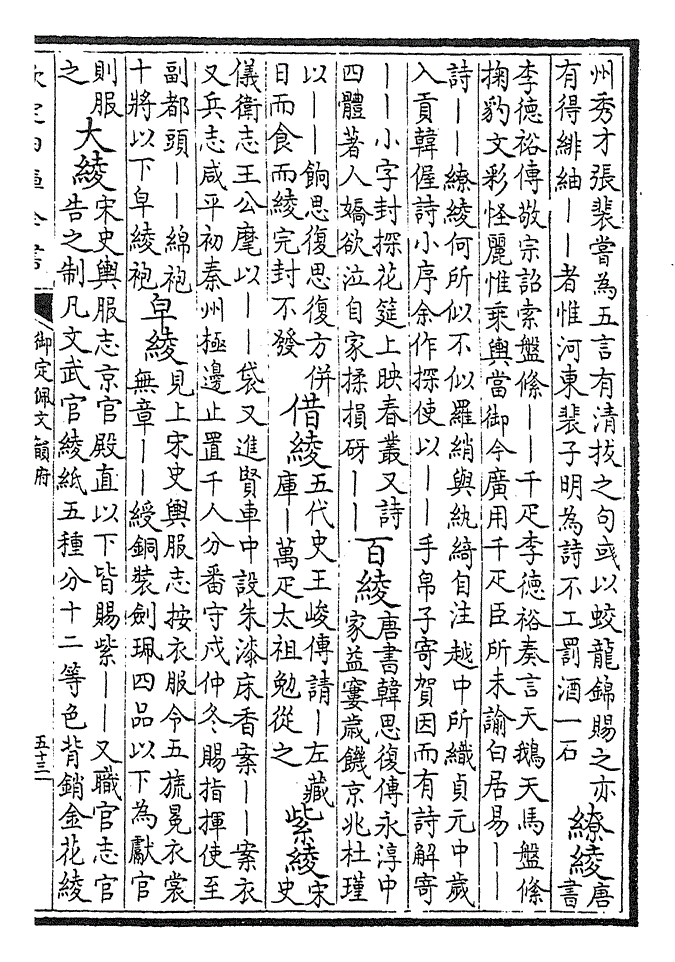 州秀才張裴嘗為五言有清拔之句或以蛟龍錦賜之亦
有得緋紬——者惟河東裴子明為詩不工罰酒一石
繚綾
唐
書
李德裕傳敬宗詔索盤絛——千疋李德裕奏言天鵝天馬盤絛
掬豹文彩怪麗惟乗輿當御今廣用千疋臣所未諭白居易——
詩——繚綾何所似不似羅綃與紈綺自注越中所織貞元中歲
入貢韓偓詩小序余作探使以——手帛子寄賀因而有詩解寄
——小字封探花筵上映春叢又詩
四體著人嬌欲泣自家揉損砑——
百綾
唐書韓思復傳永淳中
家益窶歲饑京兆杜瑾
以——餉思復思復方併
日而食而綾完封不發
借綾
五代史王峻傳請—左藏
庫—萬疋太祖勉從之
紫綾
宋
史
儀衛志王公麾以——袋又進賢車中設朱漆床香案——案衣
又兵志咸平初秦州極邊止置千人分番守戍仲冬賜指揮使至
副都頭——綿袍
十將以下皁綾袍
皁綾
見上宋史輿服志按衣服令五旒冕衣裳
無章——綬銅裝劍珮四品以下為獻官
則服
之
大綾
宋史輿服志京官殿直以下皆賜紫——又職官志官
告之制凡文武官綾紙五種分十二等色背銷金花綾
欽定四庫全書
御定佩文韻府
五十三